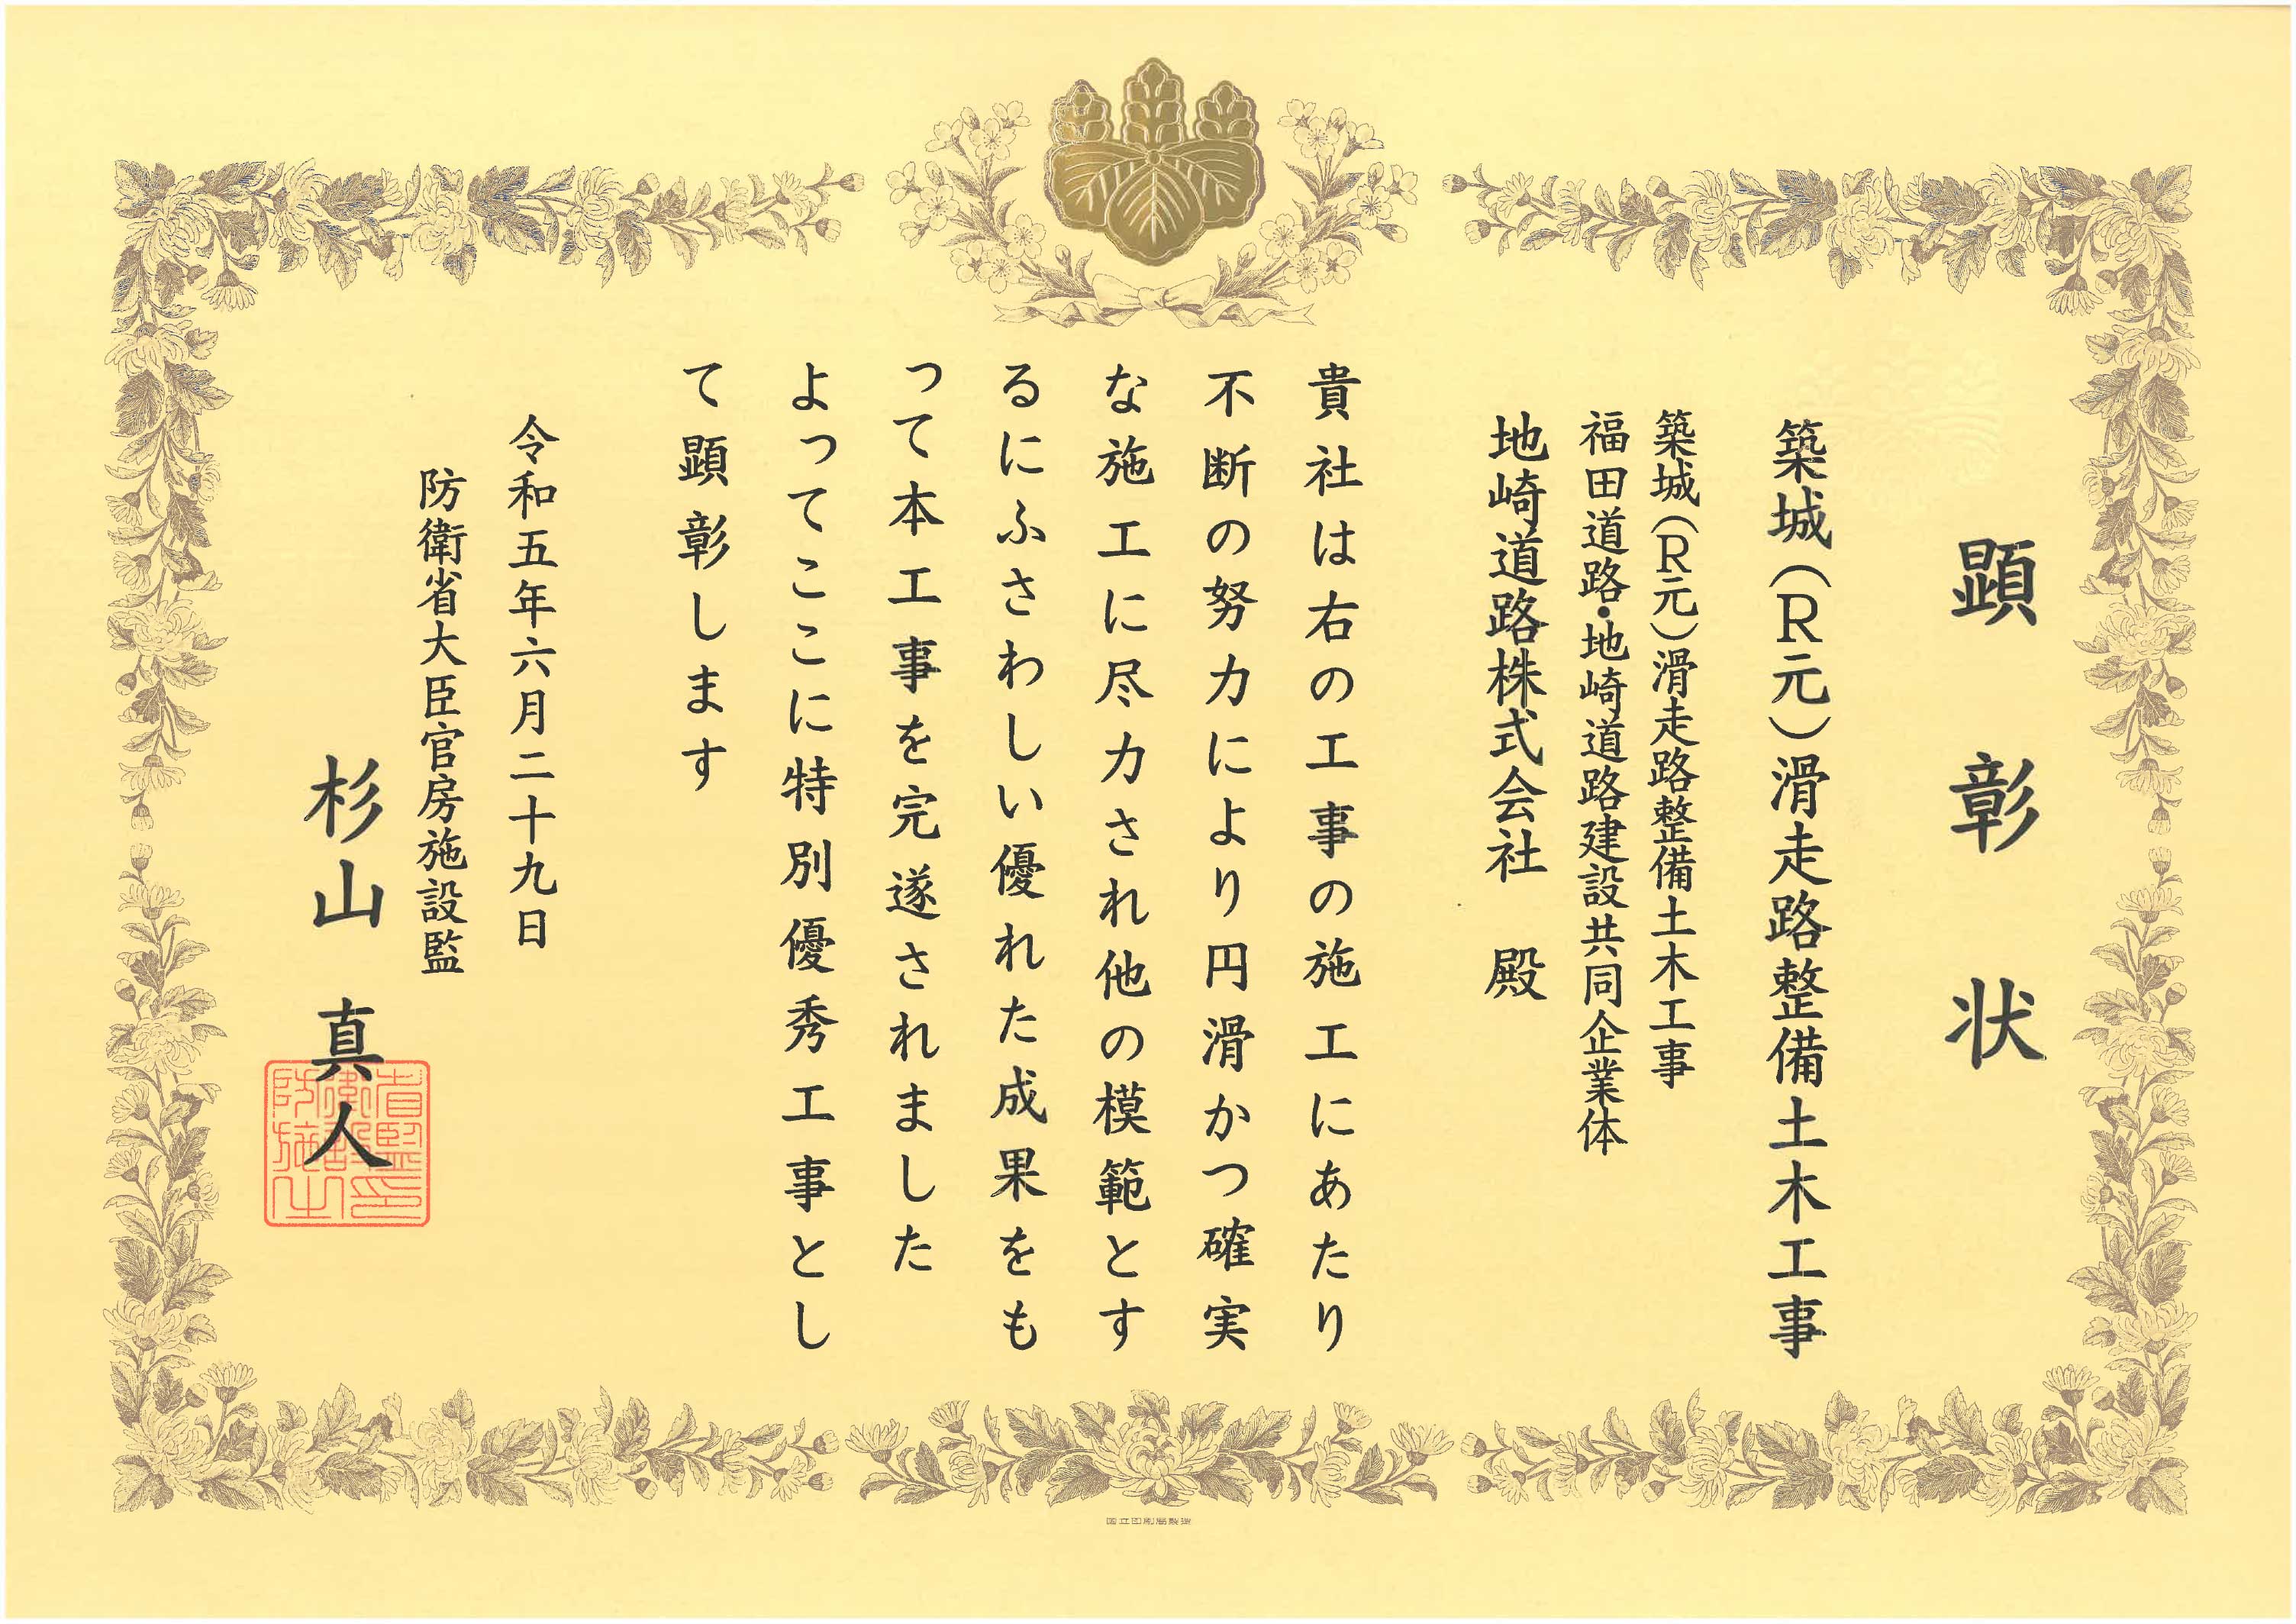 顕彰状
築城（R元）滑走路整備土木工事
築城（R元）滑走路整備土木工事
福田道路・地崎道路建設共同企業体
地崎道路株式会社 殿
貴社は右の工事の施工にあたり
不断の努力により円滑かつ確実
な施工に尽力され他の模範とす
るにふさわしい優れた成果をも
って本工事を完遂されました
よってここに特別優秀工事とし
て顕彰します
令和五年六月二十九日
防衛省大臣官房施設監
杉山真人
国立印刷局製造